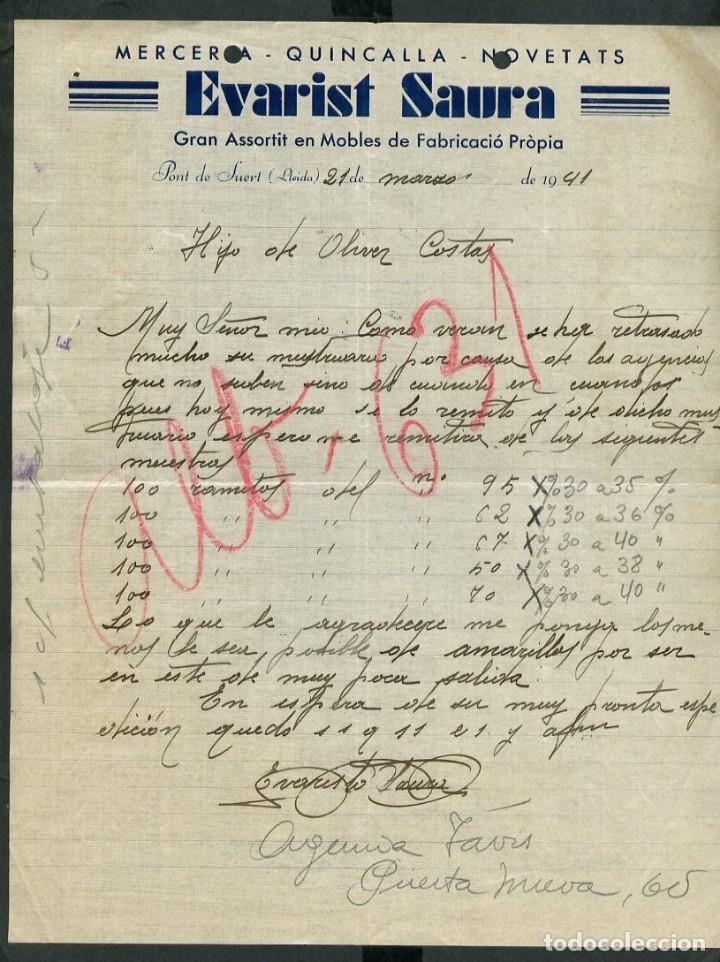 MERCERIA - QUINCALLA - NOVETATS
Evarist Saura
Gran Assortit en Mobles de Fabricació Pròpia
Pont de Suert (Lleida) 21 de marzo de 1941
Hijo de Oliver Costas
Muy Señor mio: Como veran se ha retrasado
mucho su mustruario por causa de las agencias
que no suben sino de cuando en cuando
pues hoy mismo se lo remito y de dicho mus
truario espero me remitira de los siguentes
muestras
100 ramitos del nº 95 X % 30 a 35 %
100 " " " 62 X % 30 a 36 %
100 " " " 67 X % 30 a 40 "
100 " " " 50 X % 30 a 38 "
100 " " " 70 X % 30 a 40 "
Lo que le agradecere me ponga los me-
nos le sea posible de amarillos por ser
en este de muy poca salida.
En espera de su muy pronta espe
dición quedo s s q s s e s y afmo
Evaristo Saura
Agencia Távis
Puerta nueva, 60
1 c/ embalaje 5-
todocoleccion
todocoleccion.net